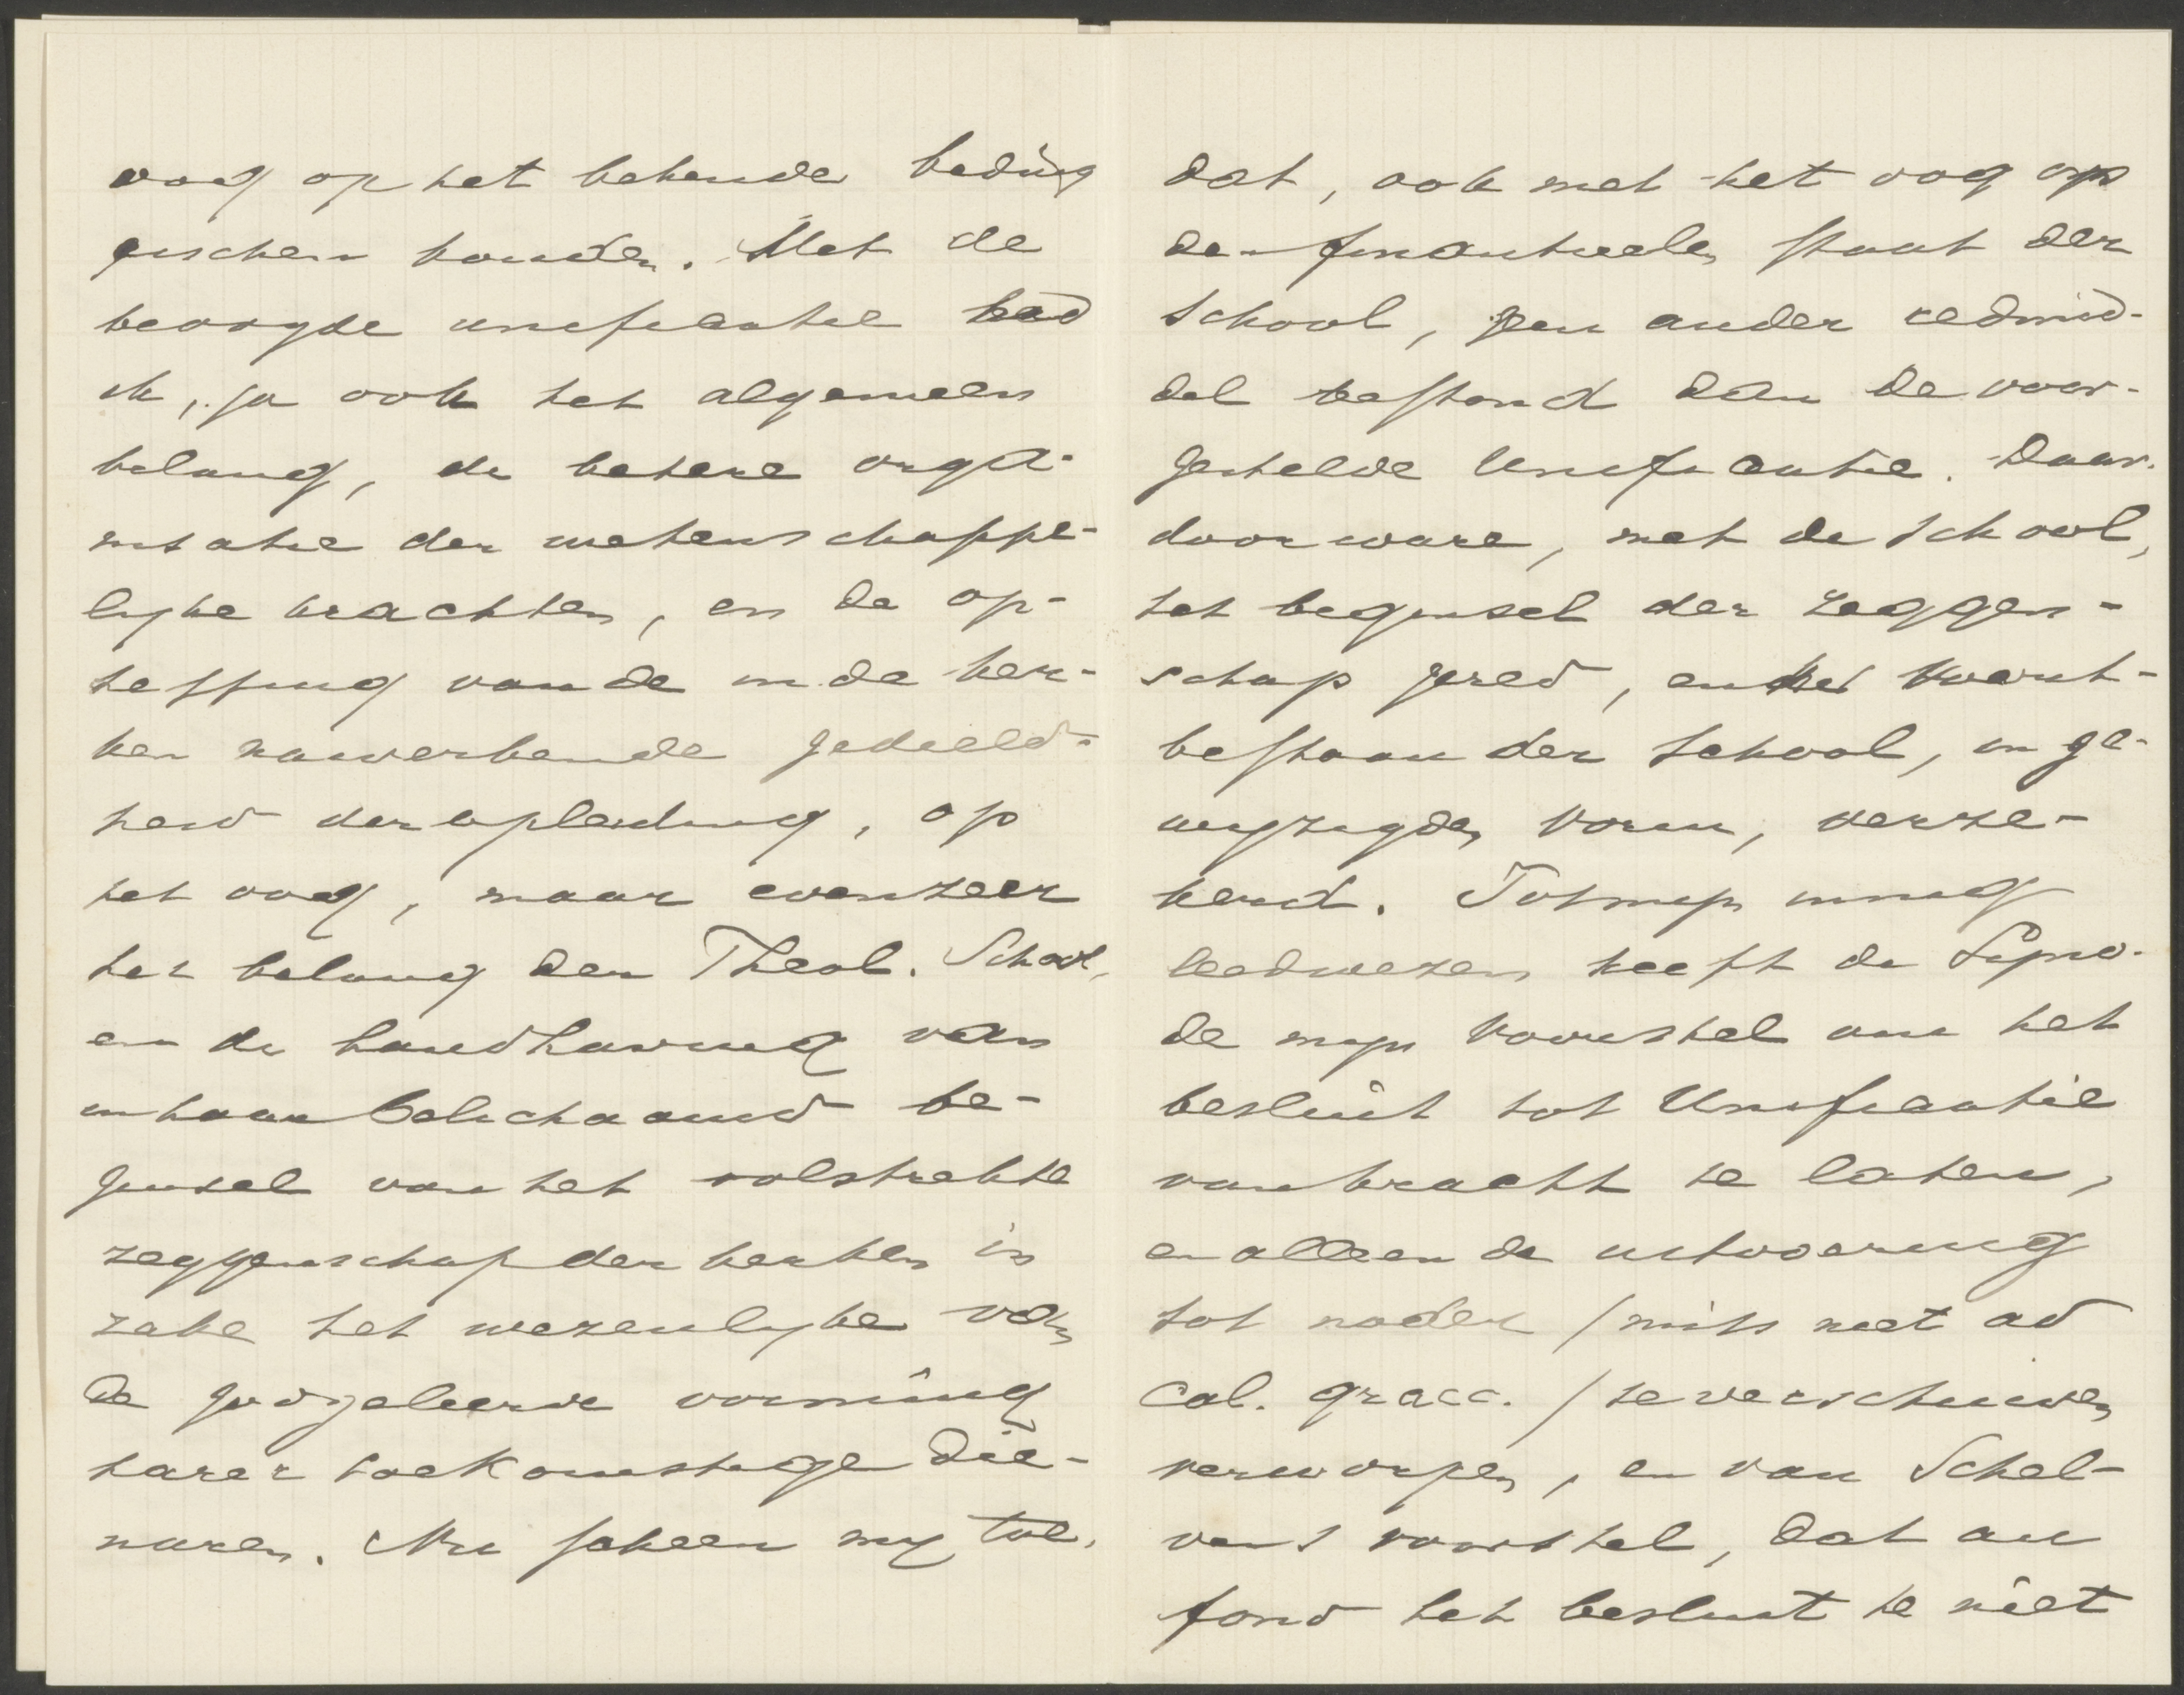 oog op het bekende beding
eischen konden. Met de
beoogde unificatie had
ik, ja ook het algemeen
belang, de betere orga-
nisatie der wetenschappe-
lijke krachten, en de op-
heffing van de in de ker-
ken nawerkende gedeeld-
heid der opleiding, op
het oog, maar evenzeer
het belang der Theol. School,
en de handhaving van
in haar belichaamd be-
ginsel van het volstrekte
zeggenschap der kerken in
zake het wezenlijke van
de godgeleerde vorming
harer toekomstige die-
naren. Nu scheen mij toe,
dat, ook met het oog op
de finantieelen staat der
School, geen ander redmid-
del bestond dan de voor-
gestelde Unificatie. Daar-
door ware, met de School,
het beginsel der zeggen-
schap gered, en het voort-
bestaan der School, in ge-
wijzigden vorm, verze-
kerd. Tot mijn innig
leedwezen heeft de Syno-
de mijn voorstel om het
besluit tot Unificatie
van kracht te laten,
en alleen de uitvoering
tot nader / mits niet ad
Cal. graec. / te verschuiven
verworpen, en van Schel-
ven's voorstel, dat au
fond het besluit te niet